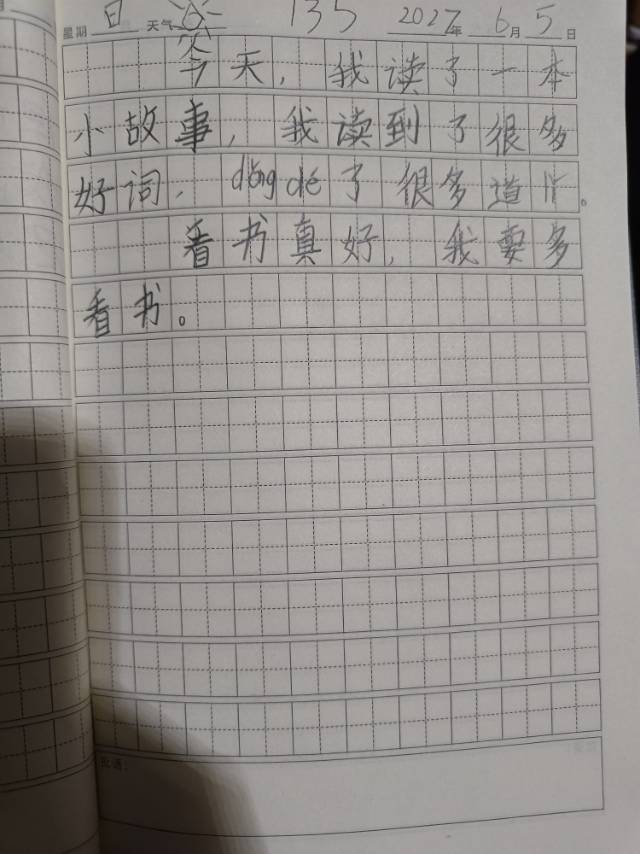 星期 日 天气 135 2022年 6月 5日
今天，我读了一本
小故事，我读到了很多
好词，dǒng dé了很多道
看书真好，我要多
看书。
批语：